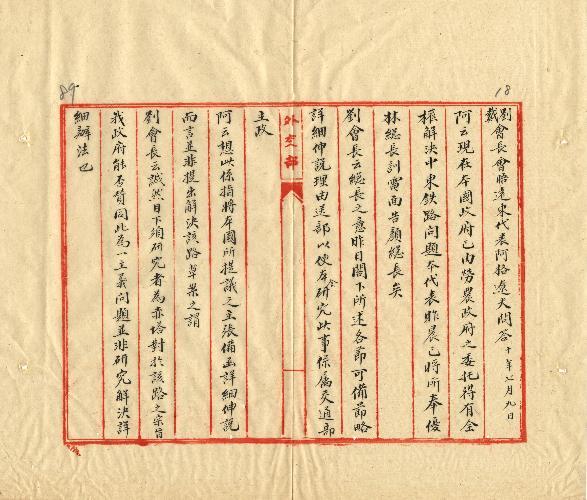 18
劉會長會晤遠東代表阿格遼夫問答 十年七月九日
戴
阿云現在本國政府已由勞農政府之委托得有全
權解決中東鉄路问題本代表昨晨已將所奉優
林總長訓電面告顏總長矣
劉會長云總長之意昨日閣下所述各節可備節略
詳細伸説理由送部以便本會研究此事係属交通部
外交部
主政
阿云想此係指將本國所提議之主張備函詳細伸説
而言並非提出解決該路草案之謂
劉會長云誠然目下須研究者為赤塔對於該路之宗旨
我政府能否贊同此為一主義问題並非研究解決詳
細辦法也
89